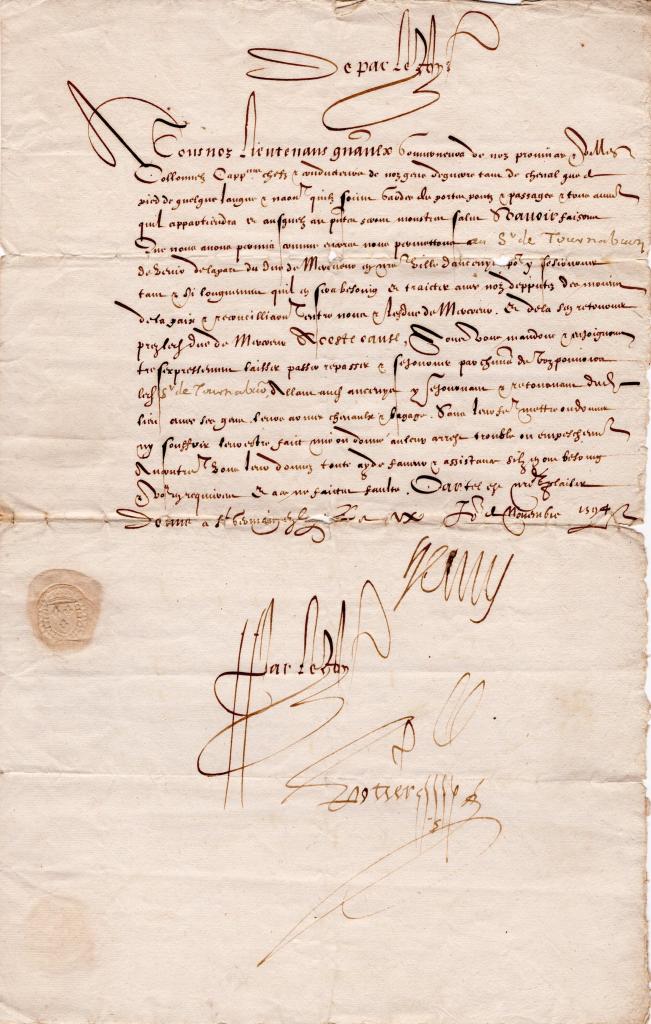 De par le Roy
A Tous noz lieutenans gnaulx Gouverneurs de noz provinces & villes
Collonnelz Cappnes chefz & conducteurs de noz gens de guerre tant de cheval que de
pied de quelque langue & naon quilz soient Gardes des portes pontz & passages & tous autres
quil appartiendra et ausquelz ces pntes seront monstrees salut Scavoir faisons
Que nous avons permis comme encores nous permettons au Sr de Tournabuon
de venir de la part du Duc de Mercueur en nre ville dancenys por y sejourner
tant & si longuement quil en sera besoing et traicter avec noz depputez des moiens
de la paix & reconcilliaon entre nous & led duc de Mercueur. Et de la sen retourner
prez led duc de Mercueur A ceste cause, Nous vous mandons & enjoignons
tresexpressement laisser passer repasser & sejourner par chacun de voz pouvoirs
led Sr de Tournabuon Allant aud ancenys y sejournant & retournant dud
lieu avec ses gens leurs armes chevaulx & bagage. Sans leur fe mettre ou donner
ny souffrir leur estre faict mis ou donné aucun arrest trouble ou empeschemt
Au contre vous leur donnez toute ayde faveur & assistance silz en ont besoing
& vous en requierent Et a ce ne faictes faulte. Car tel est nre plaisir
Donné a St Germain en Laye le xx Jor de Novembre 1594
Henry
Par le Roy
Potier